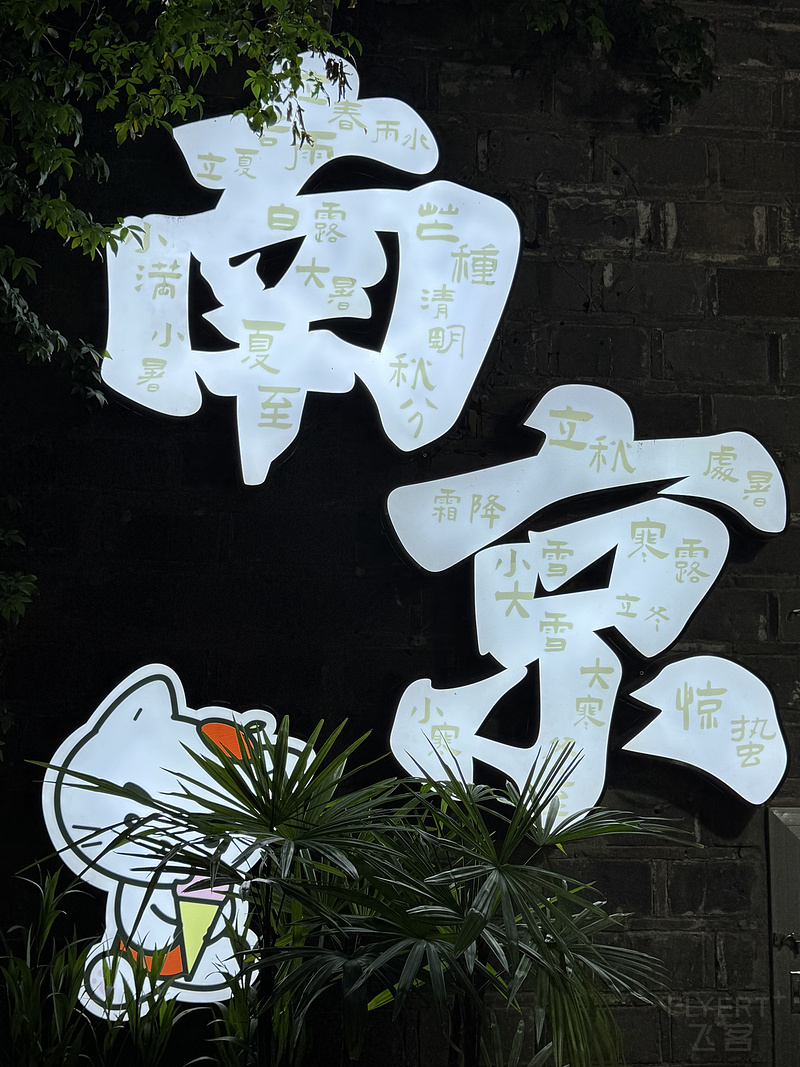 南京
立春
雨水
立夏
谷雨
白露
芒種
小满
大暑
清明
小暑
夏至
秋分
立秋
處暑
霜降
小雪
寒露
大雪
立冬
大寒
小寒
惊蛰
FLYERT
飞客